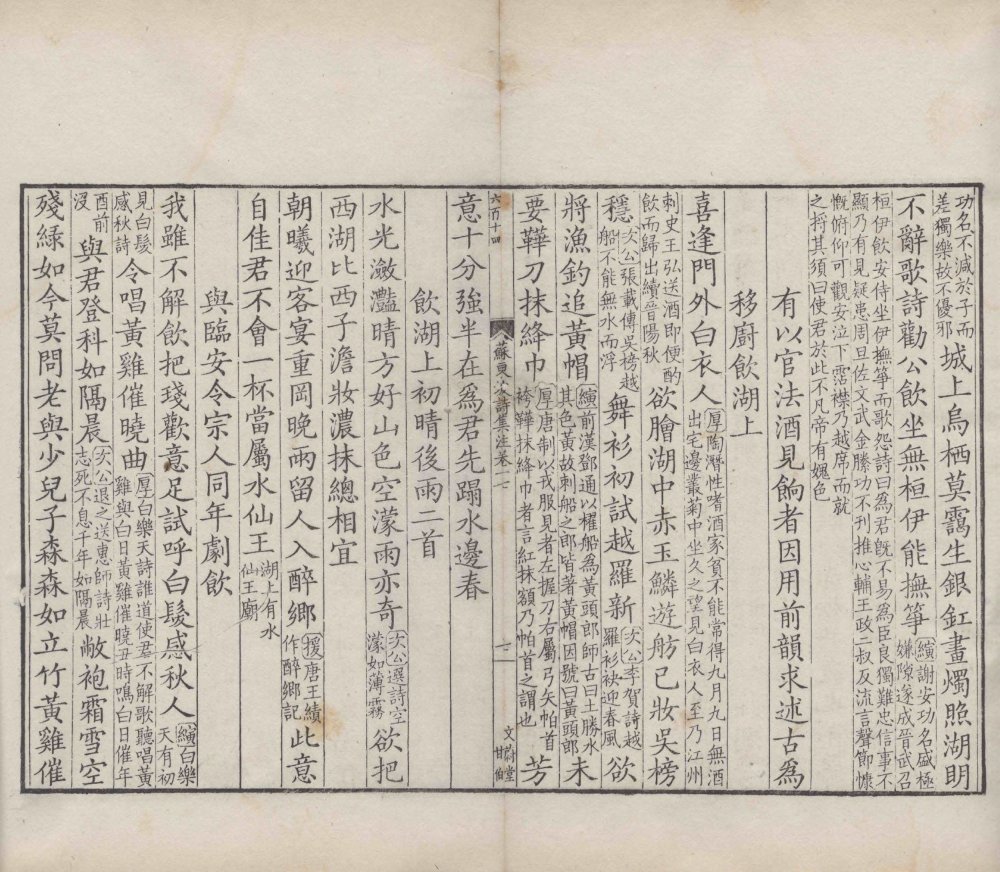 功名不減於子而
差獨樂故不優邪
城上烏栖莫靄生銀釭畫燭照湖明
不辭歌詩勸公飲坐無桓伊能撫箏
縯謝安功名盛極
嫌隙遂成晉武召
桓伊飲安侍坐伊撫箏而歌怨詩曰爲君旣不易爲臣良獨難忠信事不
顯乃有見疑患周旦佐文武金縢功不刊推心輔王政二叔反流言聲節慷
慨俯仰可觀安泣下霑襟乃越席而就
之捋其須曰使君於此不凡帝有媿色
有以官法酒見餉者因用前韻求述古爲
移廚飲湖上
喜逢門外白衣人
厚陶潛性嗜酒家貧不能常得九月九日無酒
出宅邊叢菊中坐久之望見白衣人至乃江州
刺史王弘送酒即便酌
飲而歸出續晉陽秋
欲膾湖中赤玉鱗遊舫已妝吳榜
穩
次公張載傳吳榜越
船不能無水而浮
舞衫初試越羅新
次公李賀詩越
羅衫袂迎春風
欲
將漁釣追黃帽
縯前漢鄧通以櫂船爲黃頭郎師古曰土勝水
其色黃故刺船之郎皆著黃帽因號曰黃頭郎
未
要鞾刀抹絳巾
厚唐制以戎服見者左握刀右屬弓矢帕首
袴鞾抹絳巾者言紅抹額乃帕首之謂也
芳
六百十四
蘇東坡詩集注卷二七
文蔚堂
甘伯
意十分強半在爲君先蹋水邊春
飲湖上初晴後雨二首
水光瀲灩晴方好山色空濛雨亦奇
次公選詩空
濛如薄霧
欲把
西湖比西子澹妝濃抹總相宜
朝曦迎客宴重岡晚雨留人入醉鄉
援唐王績
作醉鄉記
此意
自佳君不會一杯當屬水仙王
湖上有水
仙王廟
與臨安令宗人同年劇飲
我雖不解飲把琖歡意足試呼白髮感秋人
縯白樂
天有初
見白髮
感秋詩
令唱黃雞催曉曲
厚白樂天詩誰道使君不解歌聽唱黃
雞與白日黃雞催曉丑時鳴白日催年
酉前
浸
與君登科如隔晨
次公退之送惠師詩壯
志死不息千年如隔晨
敝袍霜雪空
殘綠如今莫問老與少兒子森森如立竹黃雞催